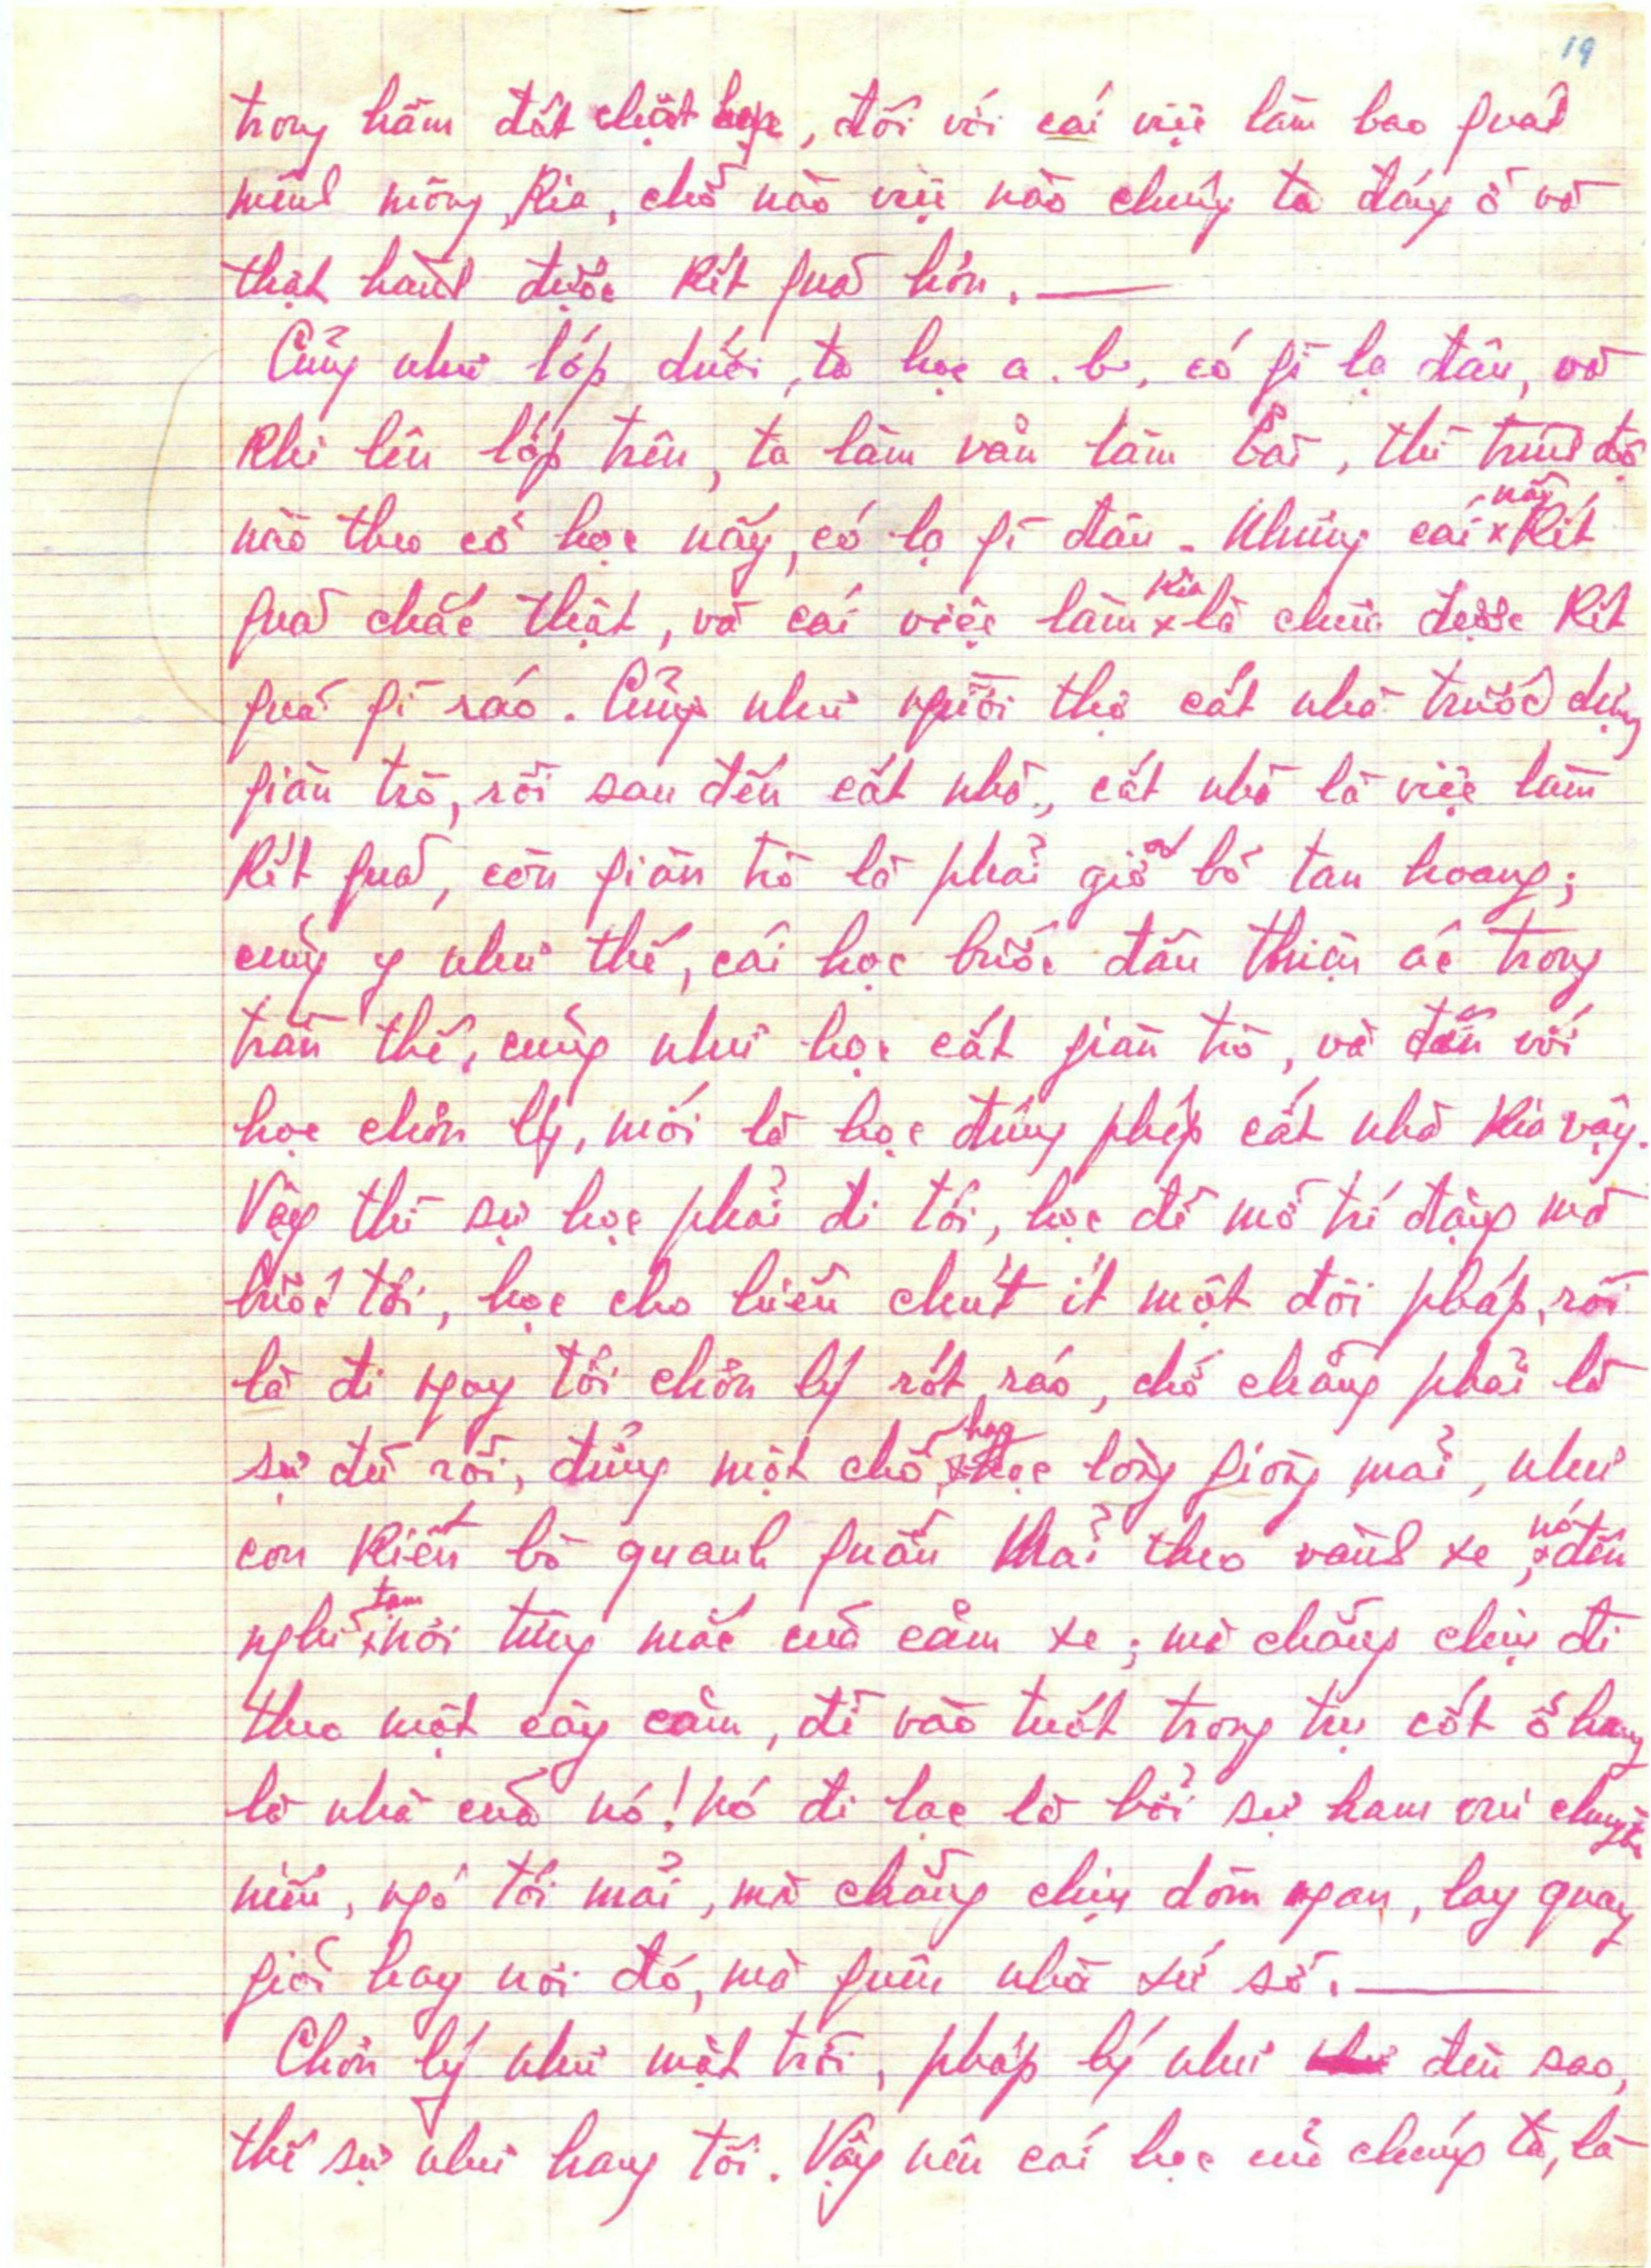 19
trong hầm đất chật hẹp, đối với cái việc làm bao quát
mênh mông kia, chỗ nào việc nào chúng ta đáng ở và
thật hành được kết quả hơn. —
Cũng như lớp dưới, ta học a. b, có gì lạ đâu, và
khi lên lớp trên, ta làm văn làm bài, thì trình độ
nào theo cỡ học nấy, có lạ gì đâu. Nhưng cái × này kết
quả chắc thật, và cái việc làm × kia là chưa được kết
quả gì ráo. Cũng như người thợ cất nhà trước dựng
giàn trò, rồi sau đến cất nhà, cất nhà là việc làm
kết quả, còn giàn trò là phải giở bỏ tan hoang;
cũng y như thế, cái học bước đầu thiện ác trong
trần thế, cũng như học cất giàn trò, và đến với
học chơn lý, mới là học đúng phép cất nhà kia vậy.
Vậy thì sự học phải đi tới, học để mở trí đặng mà
bước tới, học cho hiểu chút ít một đôi pháp, rồi
là đi ngay tới chơn lý rốt ráo, chớ chẳng phải là
sự đủ rồi, đứng một chỗ × hay học lòng giòng mãi, như
con kiến bò quanh quẩn mãi theo vành xe, × nó đến
nghỉ × tạm nơi từng mắc của căm xe; mà chẳng chịu đi
theo một cây căm, để vào tuốt trong trụ cốt ổ hang
là nhà của nó! Nó đi lạc là bởi sự ham vui chuyền
níu, ngó tới mãi, mà chẳng chịu dòm ngan, lay quay
giỏi hay nơi đó, mà quên nhà xứ sở. —
Chơn lý như mặt trời, pháp lý như đèn sao,
thế sự như hang tối. Vậy nên cái học của chúng ta, là